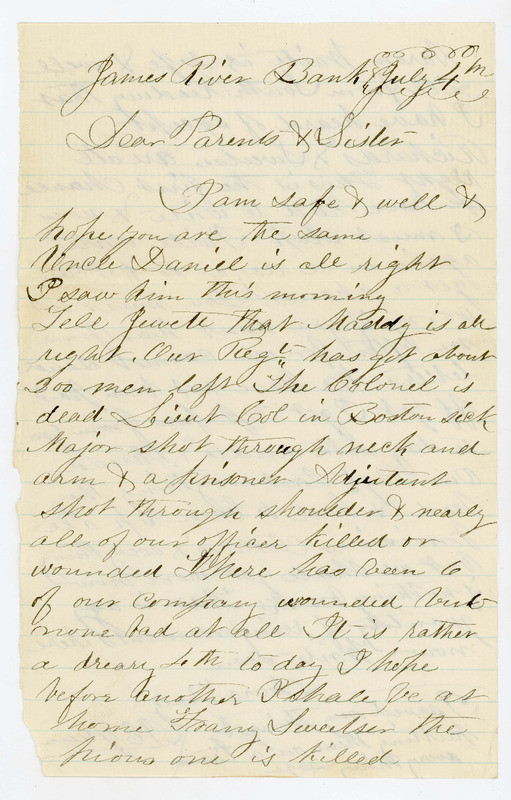 James River Bank July 4th
Dear Parents & Sister
I am safe & well &
hope you are the same
Uncle Daniel is all right
I saw him this morning
Tell Jewett that Maddy is all
right. Our Regt has got about
200 men left The Colonel is
dead Lieut Col in Boston sick
Major shot through neck and
arm & a prisoner Adjutant
shot through shoulder & nearly
all of our officer killed or
wounded There has been 6
of our company wounded but
none bad at all It is rather
a dreary 4th to day I hope
before another I shall be at
home Sweetser the
pious one is killed